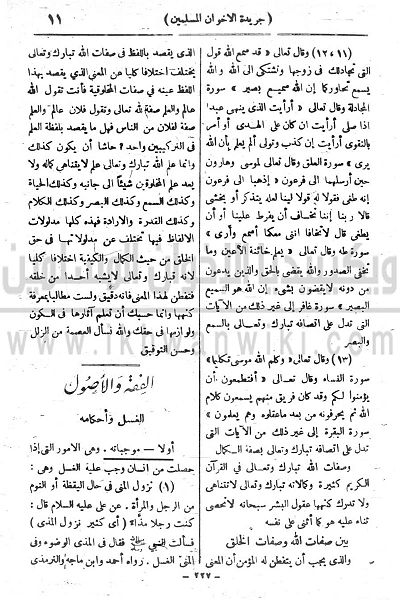 ( جريدة الاخوان المسلمين )
١١
(١٢،١١) وقال تعالى « قد سمع الله قول
التى تجادلك فى زوجها وتشتكى الى الله والله
يسمع تحاوركما إن الله سميع بصير » سورة
المجادلة وقال تعالى « أرأيت الذى ينهى عبدا
اذا صلى أرأيت ان كان على الهدى أو أمر
بالتقوى أرأيت إن كذب وتولى ألم يعلم بأن الله
يرى » سورة العلق وقال تعالى لموسى وهارون
حين أرسلهما الى فرعون « إذهبا الى فرعون
إنه طغى فقولا له قولا لينا لعله يتذكر أو يخشى
قالا ربنا إننا نخاف أن يفرط علينا أو أن
يطغى قال لاتخافا اننى معكما أسمع وأرى »
سورة طه وقال تعالى « يعلم خائنة الأعين وما
تخفى الصدور والله يقضى بالحق والذين يدعون
من دونه لايقضون بشىء إن الله هو السميع
البصير » سورة غافر إلى غير ذلك من الآيات
التى تدل على اتصافه تبارك وتعالى بالسمع
والبصر
(١٣) وقال تعالى « وكلم الله موسى تكليما »
سورة النساء وقال تعالى « أفتطمعون أن
يؤمنوا لكم وقد كان فريق منهم يسمعون كلام
الله ثم يحرفونه من بعد ماعقلوه وهم يعلمون »
سورة البقرة إلى غير ذلك من الآيات التى
تدل على اتصافه تبارك وتعالى بصفة الكلام
وصفات الله تبارك وتعالى فى القرآن
الكريم كثيرة وكمالاته تبارك وتعالى لاتتناهى
ولا تدرك كنهها عقول البشر سبحانه لانحصى
ثناء عليه هو كما أثنى على نفسه
بين صفات الله وصفات الخلق
والذى يجب أن يتفطن له المؤمن أن المعنى
الذى يقصد باللفظ فى صفات الله تبارك وتعالى
يختلف اختلافا كليا عن المعنى الذى يقصد بهذا
اللفظ عينه فى صفات المخلوقين فأنت تقول الله
عالم والعلم صفة لله تعالى وتقول فلان عالم والعلم
صفة لفلان من الناس فهل ما يقصد بلفظة العلم
فى التركيبين واحد ؟ حاشا أن يكون كذلك
وانما علم الله تبارك وتعالى علم لايتناهى كماله ولا
يعد علم المخلوقين شيئا الى جانبه وكذلك الحياة
وكذلك السمع وكذلك البصر وكذلك الكلام
وكذلك القدرة والارادة فهذه كلها مدلولات
الألفاظ فيها تختلف عن مدلولاتها فى حق
الخلق من حيث الكمال والكيفية اختلافا كليا
لانه تبارك وتعالى لايشبه أحدا من خلقه
فتفطن لهذا المعنى فانه دقيق ولست مطالبا بمعرفة
كنهها وانما حسبك أن تعلم آثارها فى الكون
ولوازمها فى حقك والله نسأل العصمة من الزلل
وحسن التوفيق
الفقه والأصول
الغسل وأحكامه
أولا — موجباته . وهى الامور التى إذا
حصلت من انسان وجب عليه الغسل وهى :
(١) نزول المنى فى حال اليقظة أو النوم
من الرجل والمرأة . عن على عليه السلام قال :
كنت رجلا مذاء ( أى كثير نزول المذى )
فسألت النبى ﷺ فقال : فى المذى الوضوء وفى
المنى الغسل . رواه أحمد وابن ماجه والترمذى
— ٢٢٧ —
www.ikhwanwiki.com